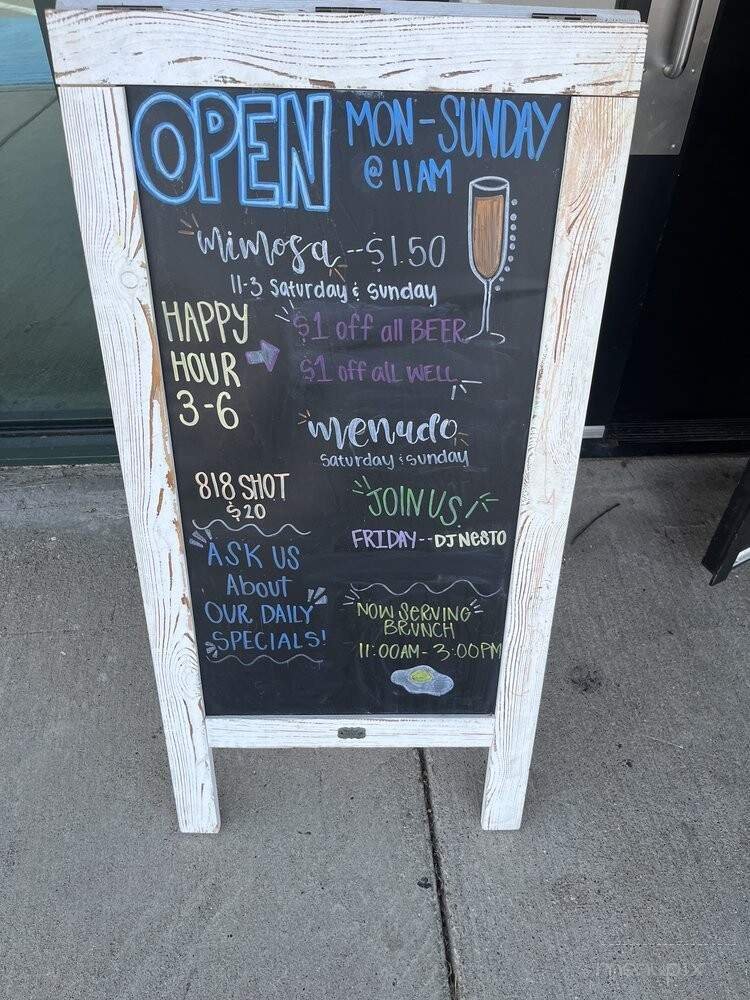 OPEN MON-SUNDAY
@ 11AM
mimosa --$1.50
11-3 Saturday & Sunday
HAPPY
HOUR
3-6
$1 off all BEER
$1 off all WELL
menudo
Saturday & Sunday
818 SHOT
$20
JOIN US!
FRIDAY--DJ NESTO
ASK US
About
OUR DAILY
SPECIALS!
NOW SERVING
BRUNCH
11:00AM- 3:00PM
menupix